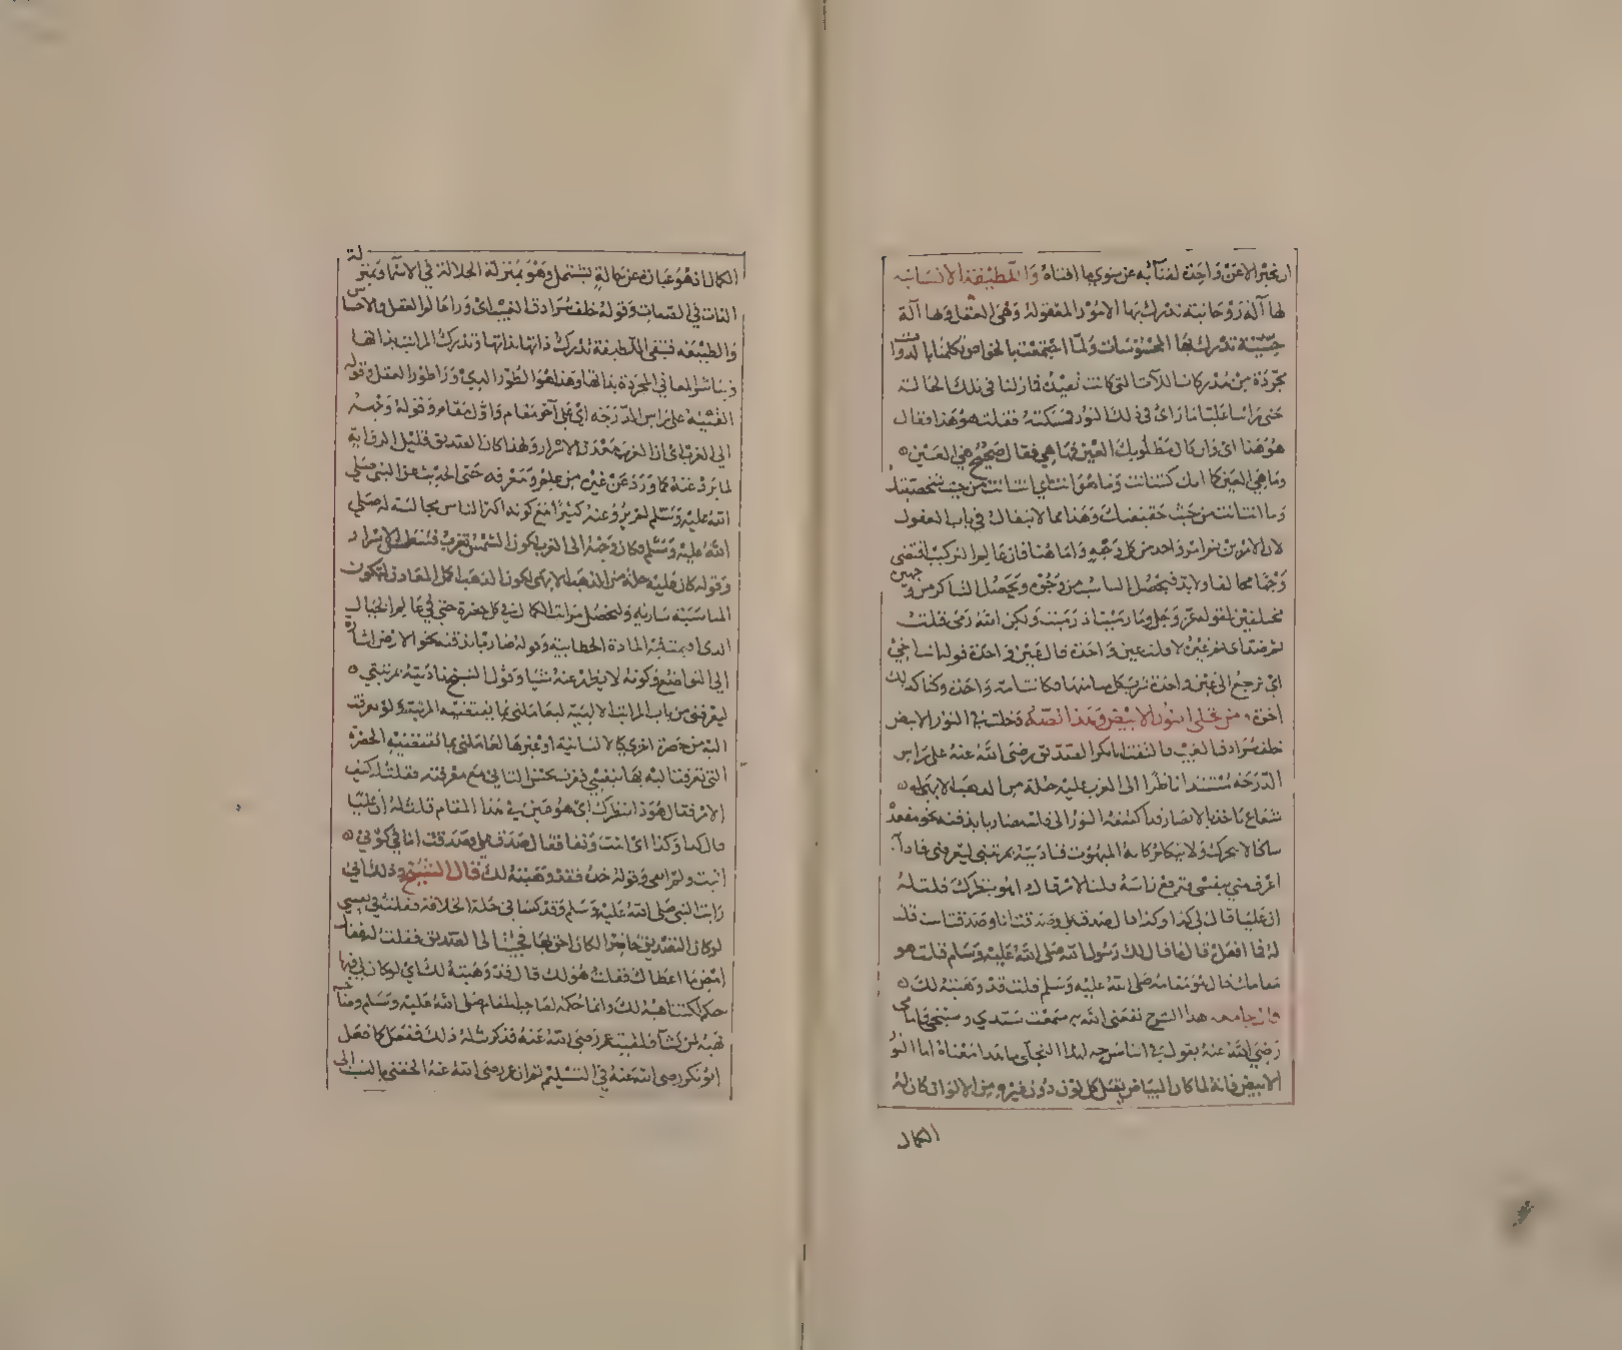 ان تخبر الا عن واحدة لفنائه عن سوى ما افناه واللطيفة الانسانية
لها آلة روحانية تدرك بها الامور المعقولة وهى العقل ولها آلة
حسية تدرك بها المحسوسات ولما اجتمعت بالخواص تكلمنا بالدوات
مجردة من مدركات الآلات التى كانت فما زلنا فى تلك الحالة
حتى رأينا عليا ما رأى فى ذلك النور فسكنته فقلت هو هذا فقال
هو هذا اى وان كان مطلوبك العين فما هى فقال صحيح هى العين
وما هى العين كما انك كنت انت وما هو انت اى انت انت من حيث شخصيتك
وما انت انت من حيث حقيقتك وهذا مما لا يقال فى باب العقول
لان الامر من واحد من كل وجه واما هنا فان عالم التركيب اقتضى
وجها مخالفا ولا بد فيحصل التناسب من وجه ويحصل التناكر من وجهين
مختلفين لقوله عز وجل وما رميت اذ رميت ولكن الله رمى قلت
قلت عين واحدة قال عين واحدة قوله
اى نرجع الى عين واحدة وكانت واحدة وكنا كذلك
اخوة ومن تجلى النور الابيض وهذا نصه دخلت فى النور الابيض
خلف سرادق الغيب فالفيت ابا بكر الصديق رضى الله عنه على راس
الدرجة مستندا ناظرا الى الغرب عليه حلة من الذهب الابهى له
شعاع ياخذ بالابصار قد اكتنفه النور ضاربا بذقنه نحو مقعده
ساكنا لا يتحرك ولا يتكلم كانه المبهوت فناديته بمرتبتى ليعرفنى فاذا
اعرف منى بنفسى فرفع راسه قلت الامر قال هوذا ينظرك قلت له
ان عليا قال لى كذا وكذا قال صدق على وصدقت انا وصدقت انت قلت
له فما افعل قال ما قال لك رسول الله صلى الله عليه وسلم قلت هو
مقامك قال هو مقامه صلى الله عليه وسلم قلت قد وهبته لك
قال جامع هذا الشرح نفعنى الله به سمعت سيدى وشيخى وامامى
رضى الله عنه يقول فى اثناء شرحه لهذا التجلى ما هذا معناه اما النور
الابيض فانه لما كان البياض يقبل كل لون دون غيره من الالوان كان له
الكمال
الكمال اذ هو عبارة عن حالة تشتمل وهو بمنزلة الجلالة فى الاسماء وبمنزلة
الذات فى الصفات وقوله خلف سرادق الغيب اى وراء عالم العقل والاحساس
والطبيعة فتبقى اللطيفة تدرك ذاتها بذاتها وتدرك المراتب بذاتها
وتباشر المعانى المجردة بذاتها وهذا هو الطور الذى وراء طور العقل وقوله
الفيته على راس الدرجة اى على آخر مقام واول مقام وقوله وجهه
الى الغرب اى اذ الغرب معدن الاسرار ولهذا كان الصديق قليل الرواية
لما يرد عنه كما ورد عن غيره من علم ومعرفة حتى الحديث عن النبى صلى
الله عليه وسلم لم يرو عنه كثيرا مع كونه اكثر الناس مجالسة له صلى
الله عليه وسلم وكان وجهه الى الغرب لكون الشمس تغرب فتستعمل الاسرار
وقوله كان عليه حلة من الذهب الابهى لكون الذهب اكمل المعادن لتكون
المناسبة سارية وليحصل مراتب الكمال فى كل حضرة حتى فى عالم الخيال
الذى المادة الخطابية وقوله ضاربا بذقنه نحو الارض اشارة
الى التواضع وكونه لا يظهر عنه شيئا وقول الشيخ ناديته بمرتبتى
ليعرفنى من باب المراتب الالهية ليعاملنى بما تقتضيه المرتبة ولو تعرفت
اليه من حضرة اخرى كالانسانية او غيرها لعاملنى بما تقتضيه الحضرة
التى تعرفت اليه بها بنفسى فعرف مع معرفته فقلت له كيف
الامر فقال هوذا انتظرك اى هو مبين فى هذا المقام قلت له ان عليا
قال كذا وكذا اى انت ونفا فقال صدق على وصدقت انا فى كونى
انبت ولم امحى وقوله خذه فقد وهبته لك قال الشيخ وذلك انى
رايت النبى صلى الله عليه وسلم وقد كسانى حلة الخلافة فقلت فى نفسى
لو كان الصديق حاضرا لكان احق بها فجئنا الى الصديق فقلت له فقال
امض ما اعطاك فقلت هو لك قال قد وهبته لك اى لو كان لى فيها
حكم لكنت اهبه لك وانما حكمه لصاحب المقام صلى الله عليه وسلم
يهبه لمن شاء فلقيت عمر رضى الله عنه فذكرت له ذلك ففعل كما فعل
ابو بكر رضى الله عنه فى التسليم ثم ان عمر رضى الله عنه الحقنى بالنسب الى